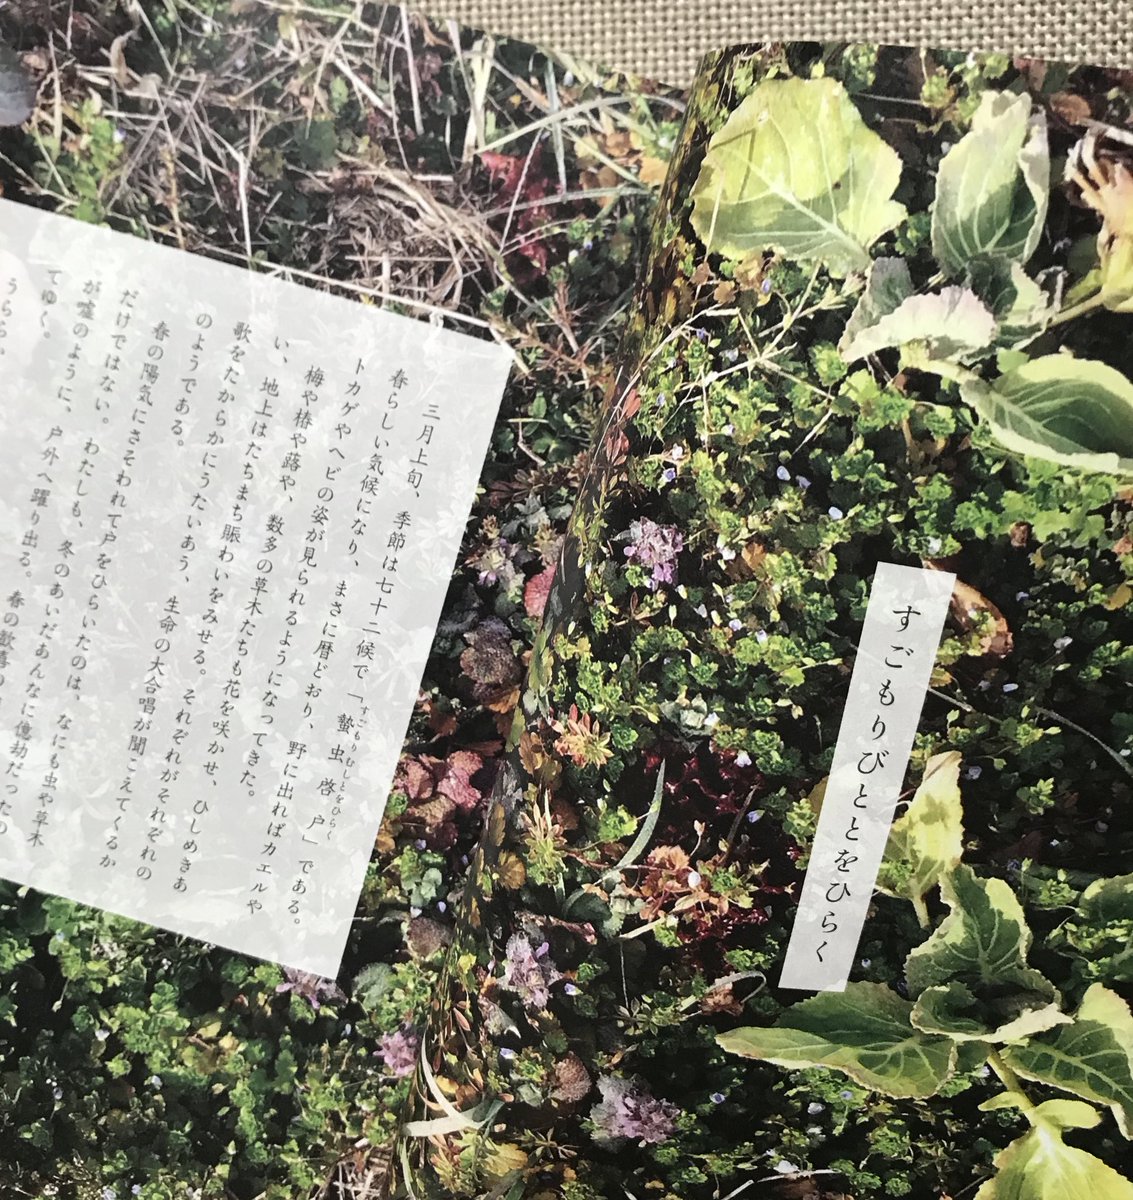 すごもりびととをひらく
三月上旬、季節は七十二候で「蟄虫啓戸」である。
すごもりむしとをひらく
春らしい気候になり、まさに暦どおり、野に出ればカエルや
トカゲやヘビの姿が見られるようになってきた。
梅や椿や蕗や、数多の草木たちも花を咲かせ、ひしめきあ
い、地上はたちまち賑わいをみせる。それぞれがそれぞれの
歌をたからかにうたいあう、生命の大合唱が聞こえてくるか
のようである。
春の陽気にさそわれて戸をひらいたのは、なにも虫や草木
だけではない。わたしも、冬のあいだあんなに億劫だったの
が嘘のように、戸外へ躍り出る。春の
てゆく。
うらら